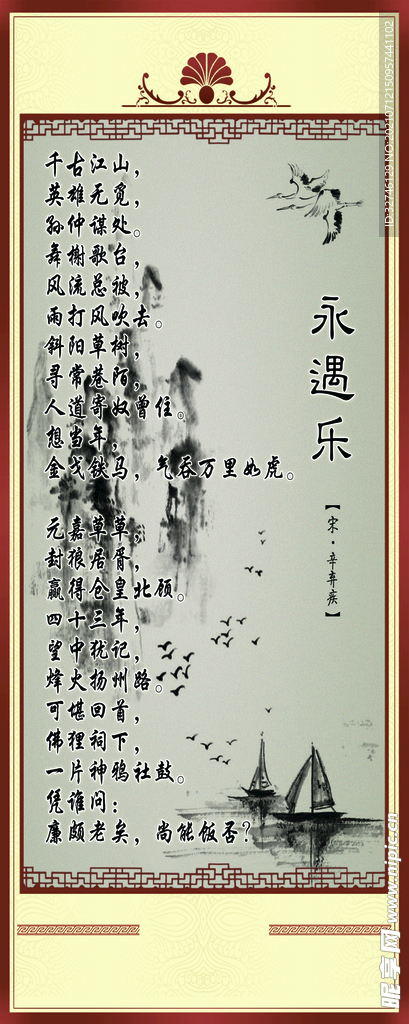 永遇乐
【宋·辛弃疾】
千古江山，
英雄无觅，
孙仲谋处。
舞榭歌台，
风流总被，
雨打风吹去。
斜阳草树，
寻常巷陌，
人道寄奴曾住。
想当年，
金戈铁马，气吞万里如虎。
元嘉草草，
封狼居胥，
赢得仓皇北顾。
四十三年，
望中犹记，
烽火扬州路。
可堪回首，
佛狸祠下，
一片神鸦社鼓。
凭谁问：
廉颇老矣，尚能饭否？
昵享网 www.nipic.cn